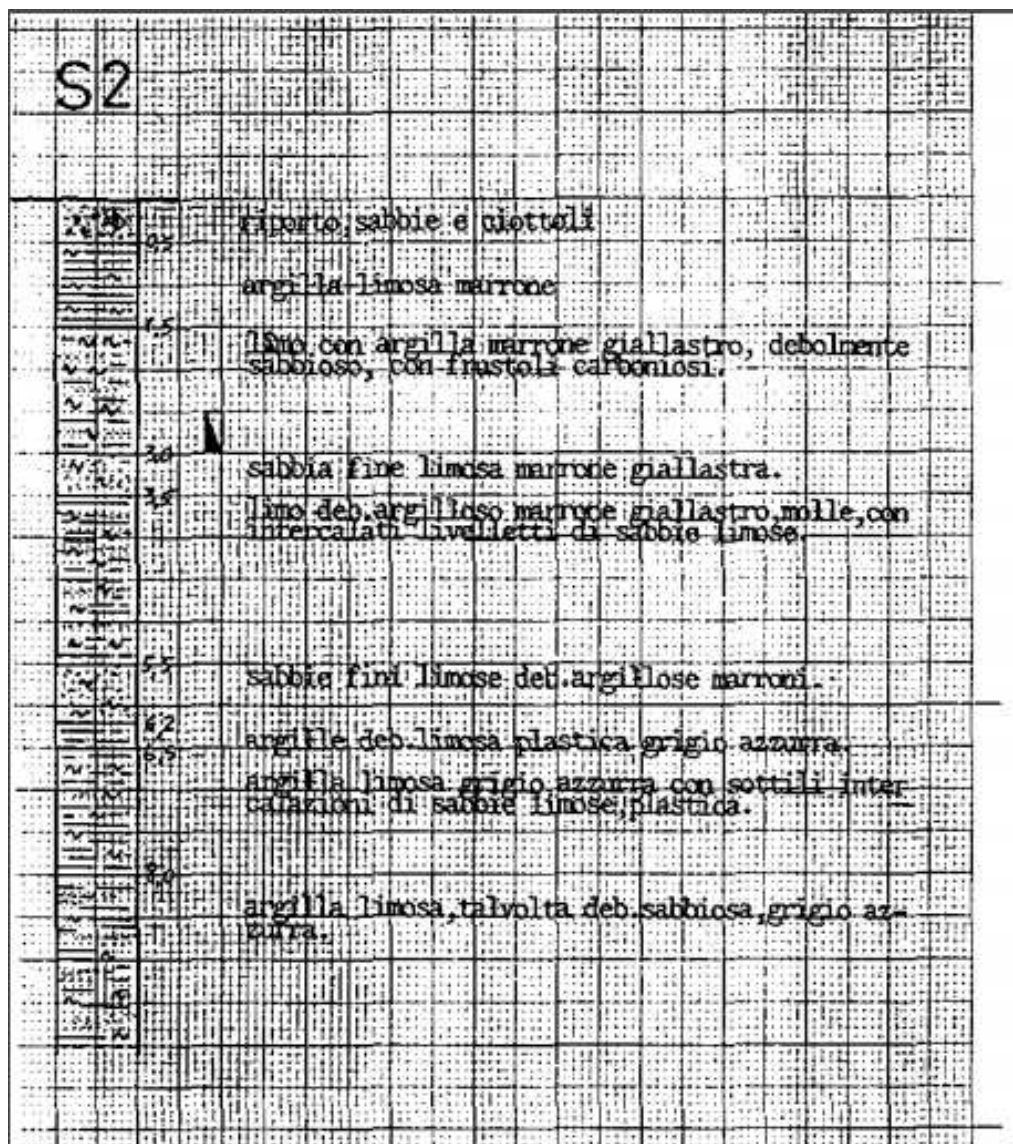 S2
riporto,sabbie e ciottoli
0,5
argilla limosa marrone
1,5
limo con argilla marrone giallastro, debolmente
sabbioso, con frustoli carboniosi.
3,0
sabbia fine limosa marrone giallastra.
3,5
limo deb.argilloso marrone giallastro,molle,con
intercalati livelletti di sabbie limose.
5,5
sabbie fini limose deb.argillose marroni.
6,2
argille deb.limosa plastica grigio azzurra.
6,5
argilla limosa grigio azzurra con sottili inter
calazioni di sabbie limose,plastica.
8,0
argilla limosa,talvolta deb.sabbiosa,grigio az-
zurra.